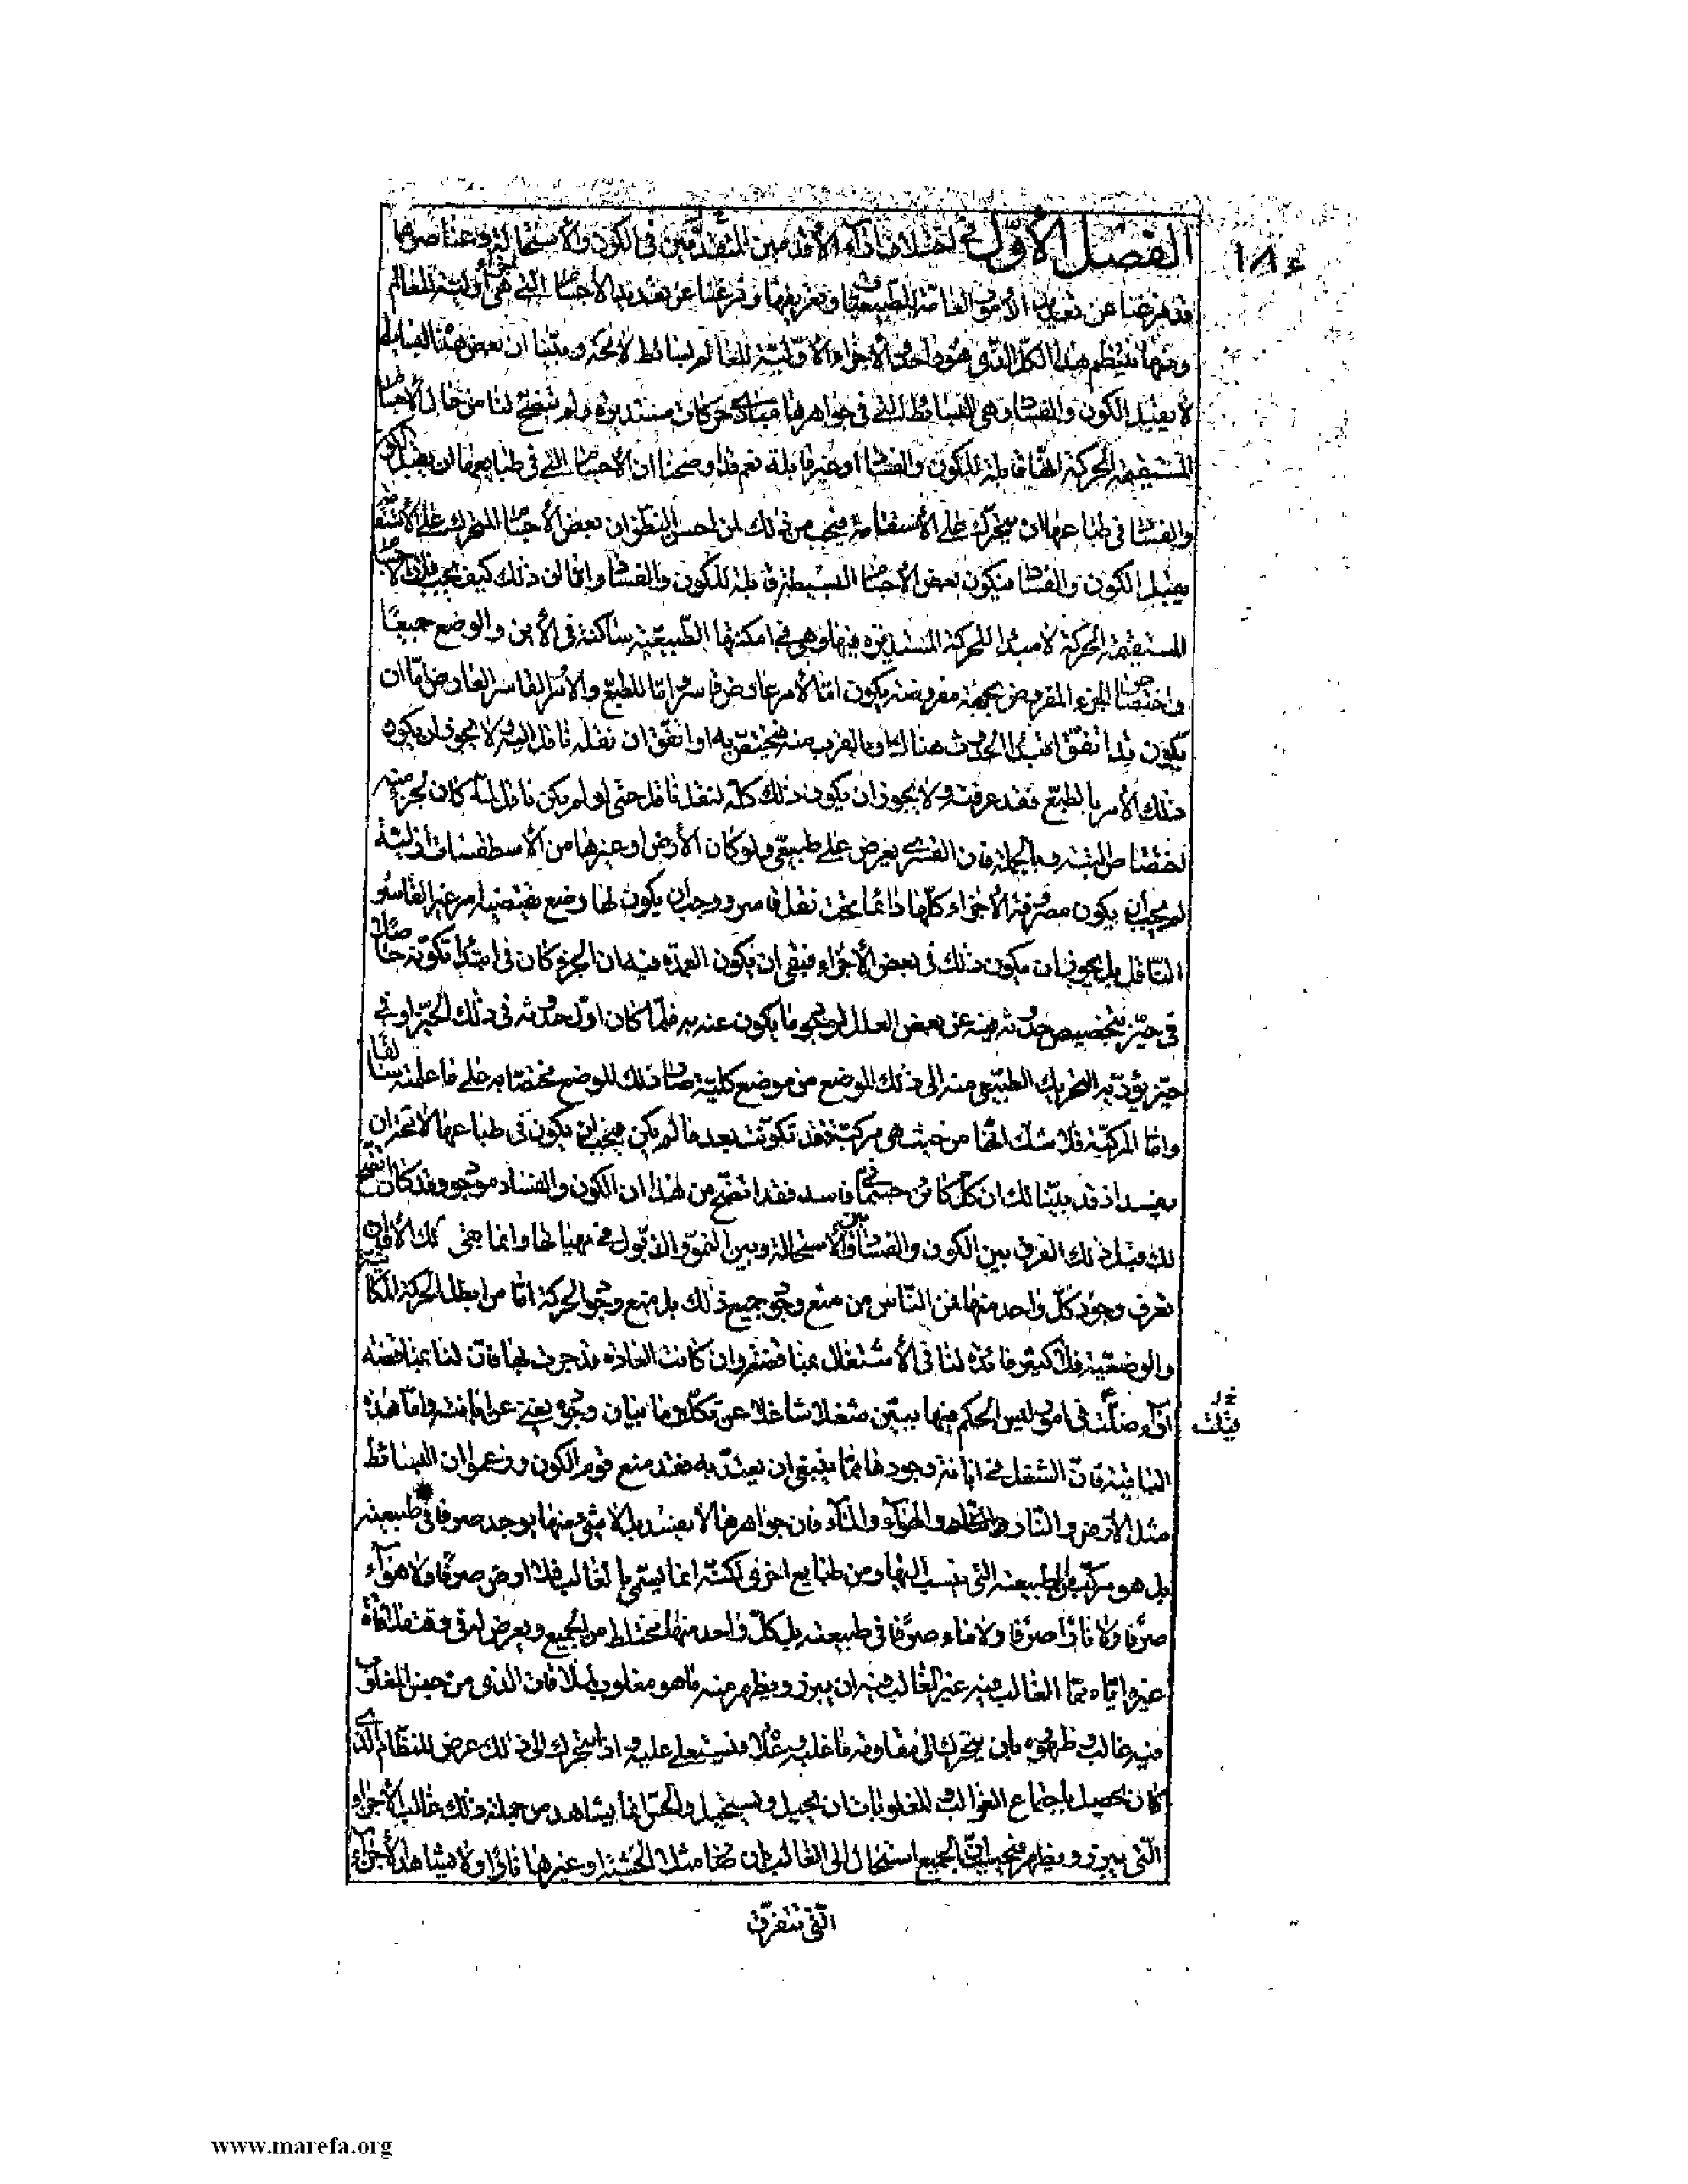 ١٨٤
الفصل الأول في اختلاف آراء الأقدمين المتقدمين في الكون والاستحالة وعناصرهما
قد فرغنا عن تعريف الأمور العامة للطبيعيات وتعريفها وفرغنا عن تعديد الأجسام التي هي أجزاء أولية للعالم
ومنها ينتظم هذا الكل الذي هو واحد والأجزاء الأولية للعالم بسائط لا محالة وبينا ان بعض هذه البسائط
لا يقبل الكون والفساد وهي البسائط التي في جواهرها مبادئ حركات مستديرة ولم يتضح لنا من حال الأجسام
المستقيمة الحركة انها قابلة للكون والفساد أو غير قابلة نعم قد أوضحنا ان الأجسام التي في طباعها ان يقبل الكون
والفساد في طباعها ان يتحرك على الاستقامة فيجب من ذلك لمن احسن النظر ان بعض الأجسام المتحركة على الاستقامة
يقبل الكون والفساد فيكون بعض الأجسام البسيطة قابلة للكون والفساد واما ان ذلك كيف يجب فلان الأجسام
المستقيمة الحركة لا مبدأ للحركة المستديرة فيها وهي في امكنتها الطبيعية ساكنة في الأين والوضع جميعا
واختصاص الجزء المفروض بجهة مفروضة يكون اما لأمر عارض قاسر واما للطبع والأمر القاسر العارض اما ان
يكون قد اتفق ابتداء الحدوث هناك او بالقرب منه فيختص به او اتفق ان نقله ناقل اليه ولا يجوز ان يكون
ذلك الأمر بالطبع فقد عرفته ولا يجوز ان يكون ذلك كله لنقل ناقل حتى لو لم يكن ناقل لما كان لجزء منه
اختصاص البتة وبالجملة فان القسري يعرض على طبيعي ولو كان الأرض او غيرها من الأسطقسات أزلية
لم يجب ان يكون مصرفة الأجزاء كلها دائما تحت نقل قاسر ووجب ان يكون لها وضع يقتضيه امر غير القاسر
الناقل بل يجوز ان يكون ذلك في بعض الأجزاء فبقي ان يكون العمدة فيه ان الجزء كان في ابتداء تكونه حاصلا
في حيز يتخصص حدوثه فيه عن بعض العلل لوجود ما يكون عنه به فلما كان اول حدوثه في ذلك الحيز او في
حيز يؤديه التحريك الطبيعي منه إلى ذلك الموضع من موضع كليته صار ذلك الموضع مختصا به على ما علمته سالفا
واما المركبة فلا شك انها من حيث هي مركبة فقد تكونت بعد ما لم يكن فيجب ان يكون في طباعها لا محالة ان
يفسد اذ قد بينا لك ان كل كائن جسماني فاسد فقد اتضح من هذا ان الكون والفساد موجود وقد كان اتضح
لك قبل ذلك الفرق بين الكون والفساد وبين الاستحالة وبين النمو والذبول في مهياتها وانما بقي لك الآن ان
تعرف وجود كل واحد منها فمن الناس من منع وجود جميع ذلك بل منع وجود الحركة اما من ابطل الحركة المكانية
والوضعية فلا كثير فائدة لنا في الاشتغال بمناقضته وان كانت العادة قد جرت بها فان لنا بمناقضة
آراء ضلت في امور ليس الحكم فيها ببين شغلا شاغلا عن تكلف ما بيان وجوده يغني عن اقامته واما هذه
قيلت
الباقية فان الشغل في ابانة وجودها مما ينبغي ان يعتد به فقد منع قوم الكون وزعموا ان البسائط
مثل الأرض والنار والهواء والماء فان جواهرها لا يفسد بل لا شيء منها يوجد صرفا في طبيعته
بل هو مركب من الطبيعة التي ينسب اليها ومن طبايع اخرى لكنه انما يسمى بالغالب فلا ارض صرفا ولا هواء
صرفا ولا نارا صرفا ولا ماء صرفا في طبيعته بل كل واحد منها مختلط من الجميع ويعرض له في وقت ملاقاة
غيره اياه مما الغالب فيه غير الغالب فيه ان يبرز ويظهر منه ما هو مغلوب لملاقات الذي من جنس المغلوب
فيه غالب وظهوره بان يتحرك إلى مقاومة ما غلبه وعلاه فيستعلي عليه واذا تحرك إلى ذلك عرض للنظام الذي
كان يحصل باجتماع الغوالب والمغلوبات ان يحيل ويستحيل والحس انما يشاهد من جملة ذلك غالب الأجزاء
التي يبرز ويظهر فيحسب ان الجميع استحال إلى الغالب بان صار مثلا الخشبة او غيرها نارا ولا يشاهد الأجزاء
التي تتفرق
www.marefa.org